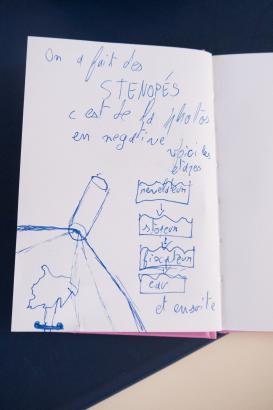 On a fait des
STENOPÉS
c est de la photos
en negative
voici les
étapes
revelateur
stopeur
fixateur
eau
et ensuite